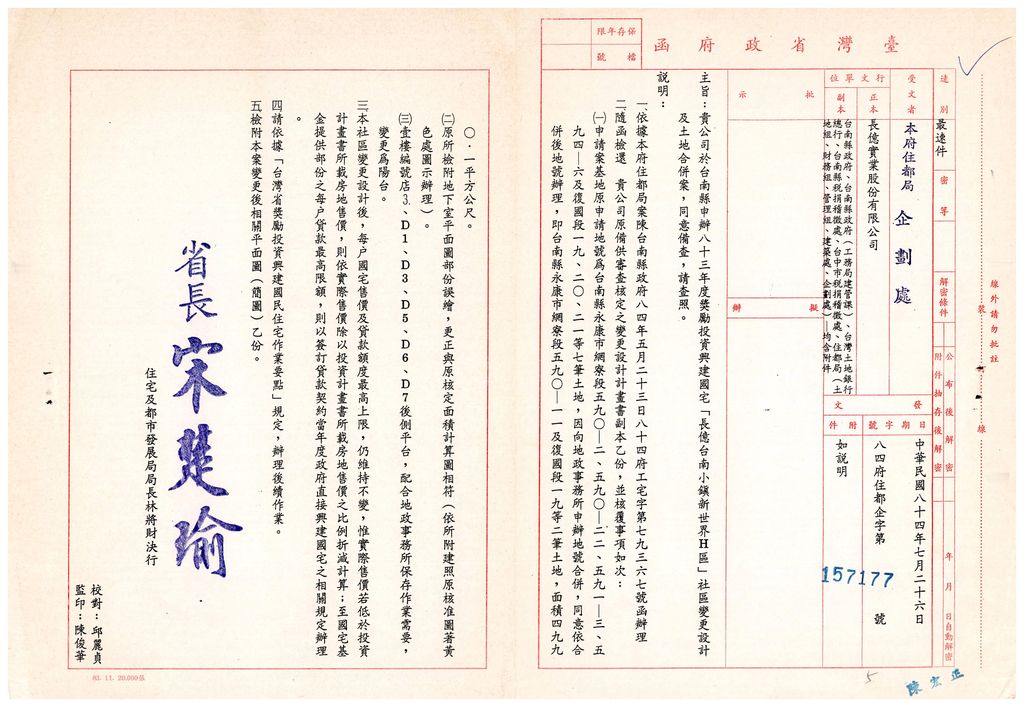 臺灣省政府函
保存年限
檔號
速別
最速件
密等
解密條件
公布後解密
附件抽存後解密
年月日自動解密
受文者
本府住都局
企劃處
行文單位
正本
長億實業股份有限公司
副本
台南縣政府、台南縣政府(工務局建管課)、台灣土地銀行
總行、台南縣稅捐稽徵處、台中市稅捐稽徵處、住都局(土
地組、財務組、管理組、建築處、企劃處)—均含附件
發文
日期
中華民國八十四年七月二十六日
字號
八四府住都企字第
157177
號
附件
如說明
批示
擬辦
主旨：貴公司於台南縣申辦八十三年度獎勵投資興建國宅「長億台南小鎮新世界H區」社區變更設計
及土地合併案，同意備查，請查照。
說明：
一、依據本府住都局案陳台南縣政府八四年五月二十三日八十四府工宅字第七九三六七號函辦理
二、隨函檢還　貴公司原備供審查核定之變更設計計畫書副本乙份，並核覆事項如次：
㈠申請案基地原申請地號為台南縣永康市網寮段五九〇—二、五九〇—二二、五九一—三、五
九四—六及復國段一九、二〇、二一等七筆土地，因向地政事務所申辦地號合併，同意依合
併後地號辦理，即台南縣永康市網寮段五九〇—一一及復國段一九等二筆土地，面積四九九
〇．一平方公尺。
㈡原所檢附地下室平面圖部份誤繪，更正與原核定面積計算圖相符(依所附建照原核准圖著黃
色處圖示辦理)。
㈢壹樓編號店3、D1、D3、D5、D6、D7後側平台，配合地政事務所保存作業需要，
變更為陽台。
三、本社區變更設計後，每戶國宅售價及貸款額度最高上限，仍維持不變，惟實際售價若低於投資
計畫書所載房地售價，則依實際售價除以投資計畫書所載房地售價之比例折減計算；至國宅基
金提供部份之每戶貸款最高限額，則以簽訂貸款契約當年度政府直接興建國宅之相關規定辦理
。
四、請依據「台灣省獎勵投資興建國民住宅作業要點」規定，辦理後續作業。
五、檢附本案變更後相關平面圖(簡圖)乙份。
省長宋楚瑜
住宅及都市發展局局長林將財決行
校對：邱麗貞
監印：陳俊華
83. 11. 20,000張
裝
線
線外請勿批註
5
陳宏正